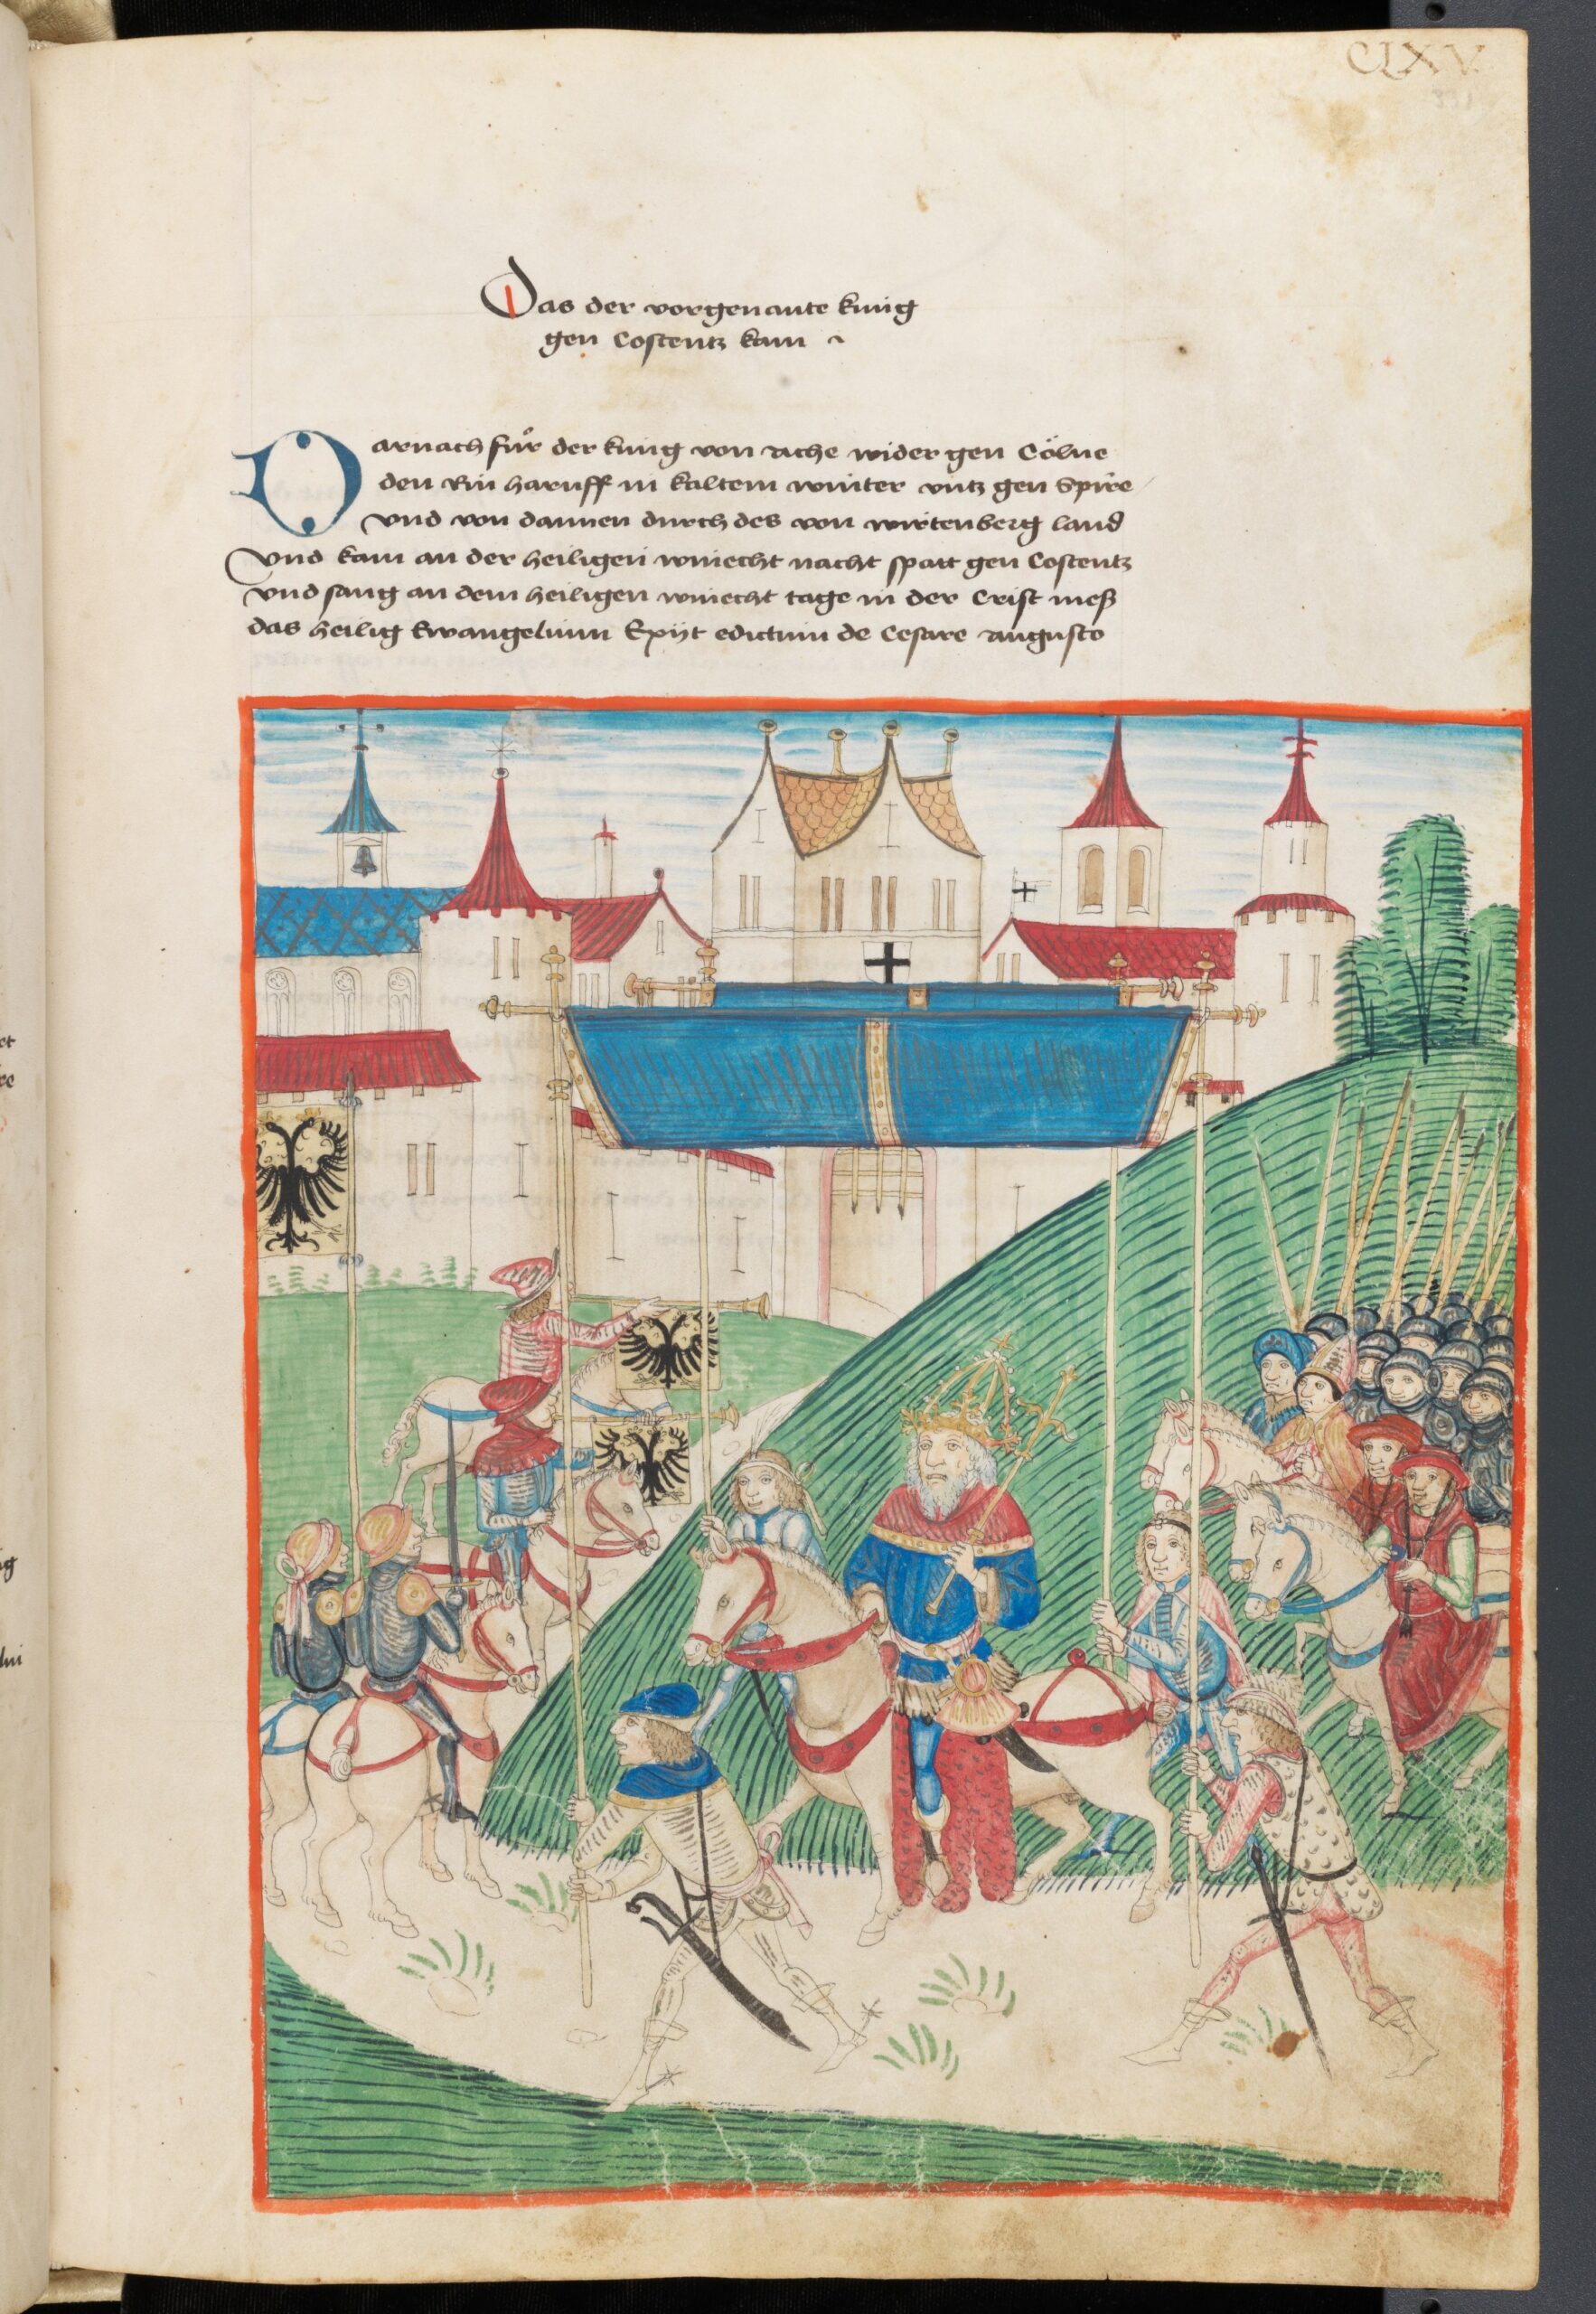 CLXV
Das der vorgenante kung
gen Costentz kam
Darnach fuͦr der kung von Ache wider gen Cölne
den Rin haruff in kaltem winter vntz gen Spire
vnd von dannen durch des von wirtenberg land
Vnd kam an der heiligen wniecht nacht spatt gen Costentz
vnd sang an dem heiligen wniecht tage in der Crist meß
das heilig Ewangelium Exijt edictum de Cesare augusto